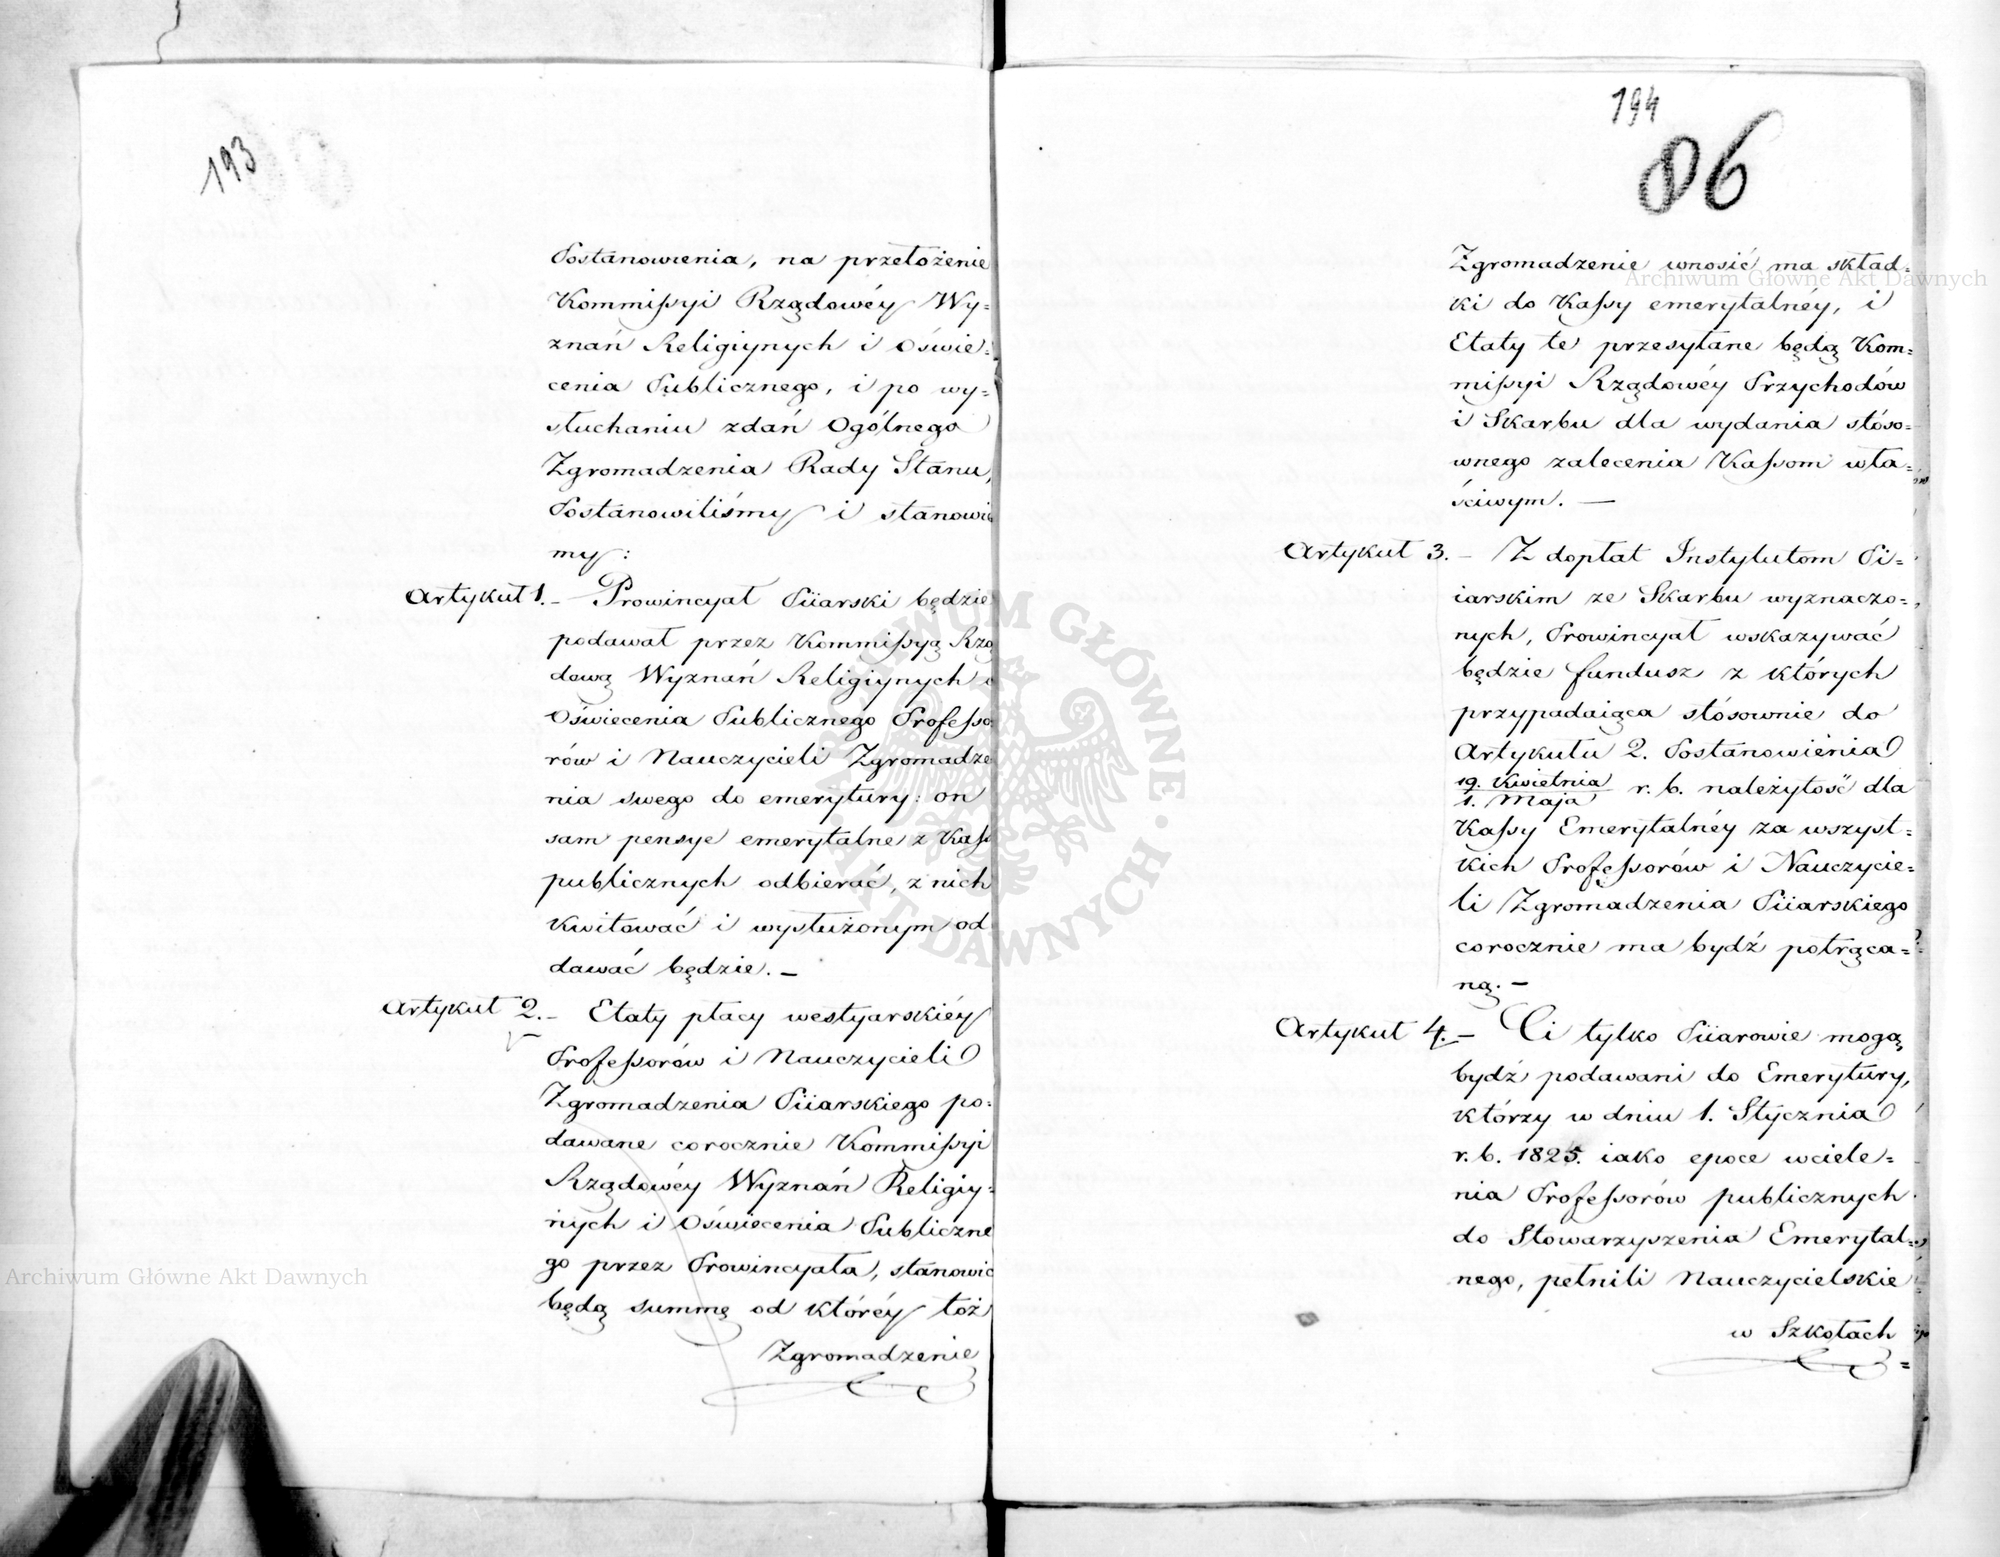 193
Postanowienia, na przełożenie
Kommissyi Rządowéy Wy-
znań Religiynych i Oświe-
cenia Publicznego, i po wy-
słuchaniu zdań Ogólnego
Zgromadzenia Rady Stanu,
Postanowiliśmy i stanowi
my:
Artykuł 1. – Prowincyał Piiarski będzie
podawał przez Kommissyą Rzą
dową Wyznań Religiynych i
Oświecenia Publicznego Professo
rów i Nauczycieli Zgromadze
nia swego do emerytury: on
sam pensye emerytalne z Kass
publicznych odbierać, z nich
kwitować i wysłużonym od
dawać będzie. –
Artykuł 2. – Etaty płacy westyarskiéy
Professorów i Nauczycieli
Zgromadzenia Piiarskiego po-
dawane corocznie Kommissyi
Rządowéy Wyznań Religiy-
nych i Oświecenia Publiczne
go przez Prowincyała, stanowić
będą summę od któréy toż
Zgromadzenie
194
86
Zgromadzenie wnosić ma skład-
ki do Kassy emerytalnéy, i
Etaty te przesyłane będą Kom-
missyi Rządowéy Przychodów
i Skarbu dla wydania stóso-
wnego zalecenia Kassom wła-
ściwym. –
Artykuł 3. – Z dopłat Instytutom Pi-
iarskim ze Skarbu wyznaczo-
nych, Prowincyał wskazywać
będzie fundusz z których
przypadaiąca stósownie do
Artykułu 2. Postanowienia
19. Kwietnia / 1. Maja r. b. należytość dla
Kassy Emerytalnéy za wszyst-
kich Professorów i Nauczycie-
li Zgromadzenia Piiarskiego
corocznie ma bydź potrąca-
ną. –
Artykuł 4. – Ci tylko Piiarowie mogą
bydź podawani do Emerytury,
którzy w dniu 1. Stycznia
r. b. 1825. iako epoce wciele-
nia Professorów publicznych
do Stowarzyszenia Emerytal-
nego, pełnili Nauczycielskie
w Szkołach
Archiwum Główne Akt Dawnych
Archiwum Główne Akt Dawnych
ARCHIWUM GŁÓWNE · AKT DAWNYCH ·